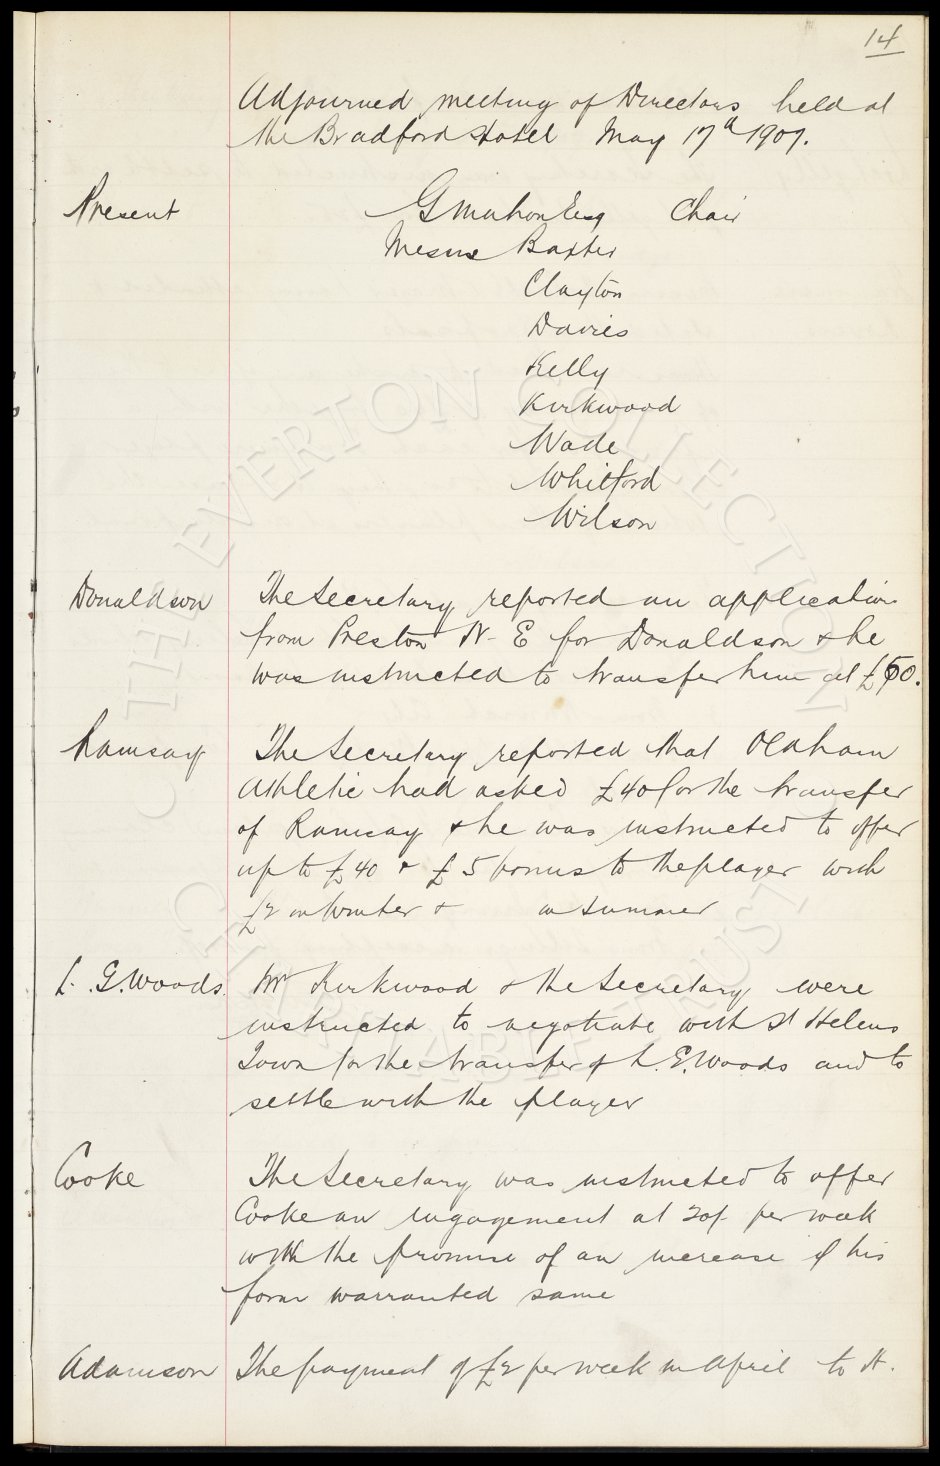 14
Adjourned meeting of Directors held at
the Bradford Hotel May 17th 1907.
Present G Mahon Esq Chair
Messrs Baxter
Clayton
Davies
Kelly
Kirkwood
Wade
Whitford
Wilson
Donaldson The Secretary reported an application
from Preston N. E for Donaldson & he
was instructed to transfer him at £50.
Ramsay The Secretary reported that Oldham
Athletic had asked £40 for the transfer
of Ramsay & he was instructed to offer
up to £40 & £5 bonus to the player with
£2 in Winter & in Summer
L. .G. Woods. Mr Kirkwood & the Secretary were
instructed to negotiate with St Helens
Town for the transfer of L. E. Woods and to
settle with the player
Cooke The Secretary was instructed to offer
Cooke an engagement at 20/- per week
with the promise of an increase if his
form warranted same
Adamson The payment of £2 per week in April to H.
THE EVERTON COLLECTION
CHARITABLE TRUST